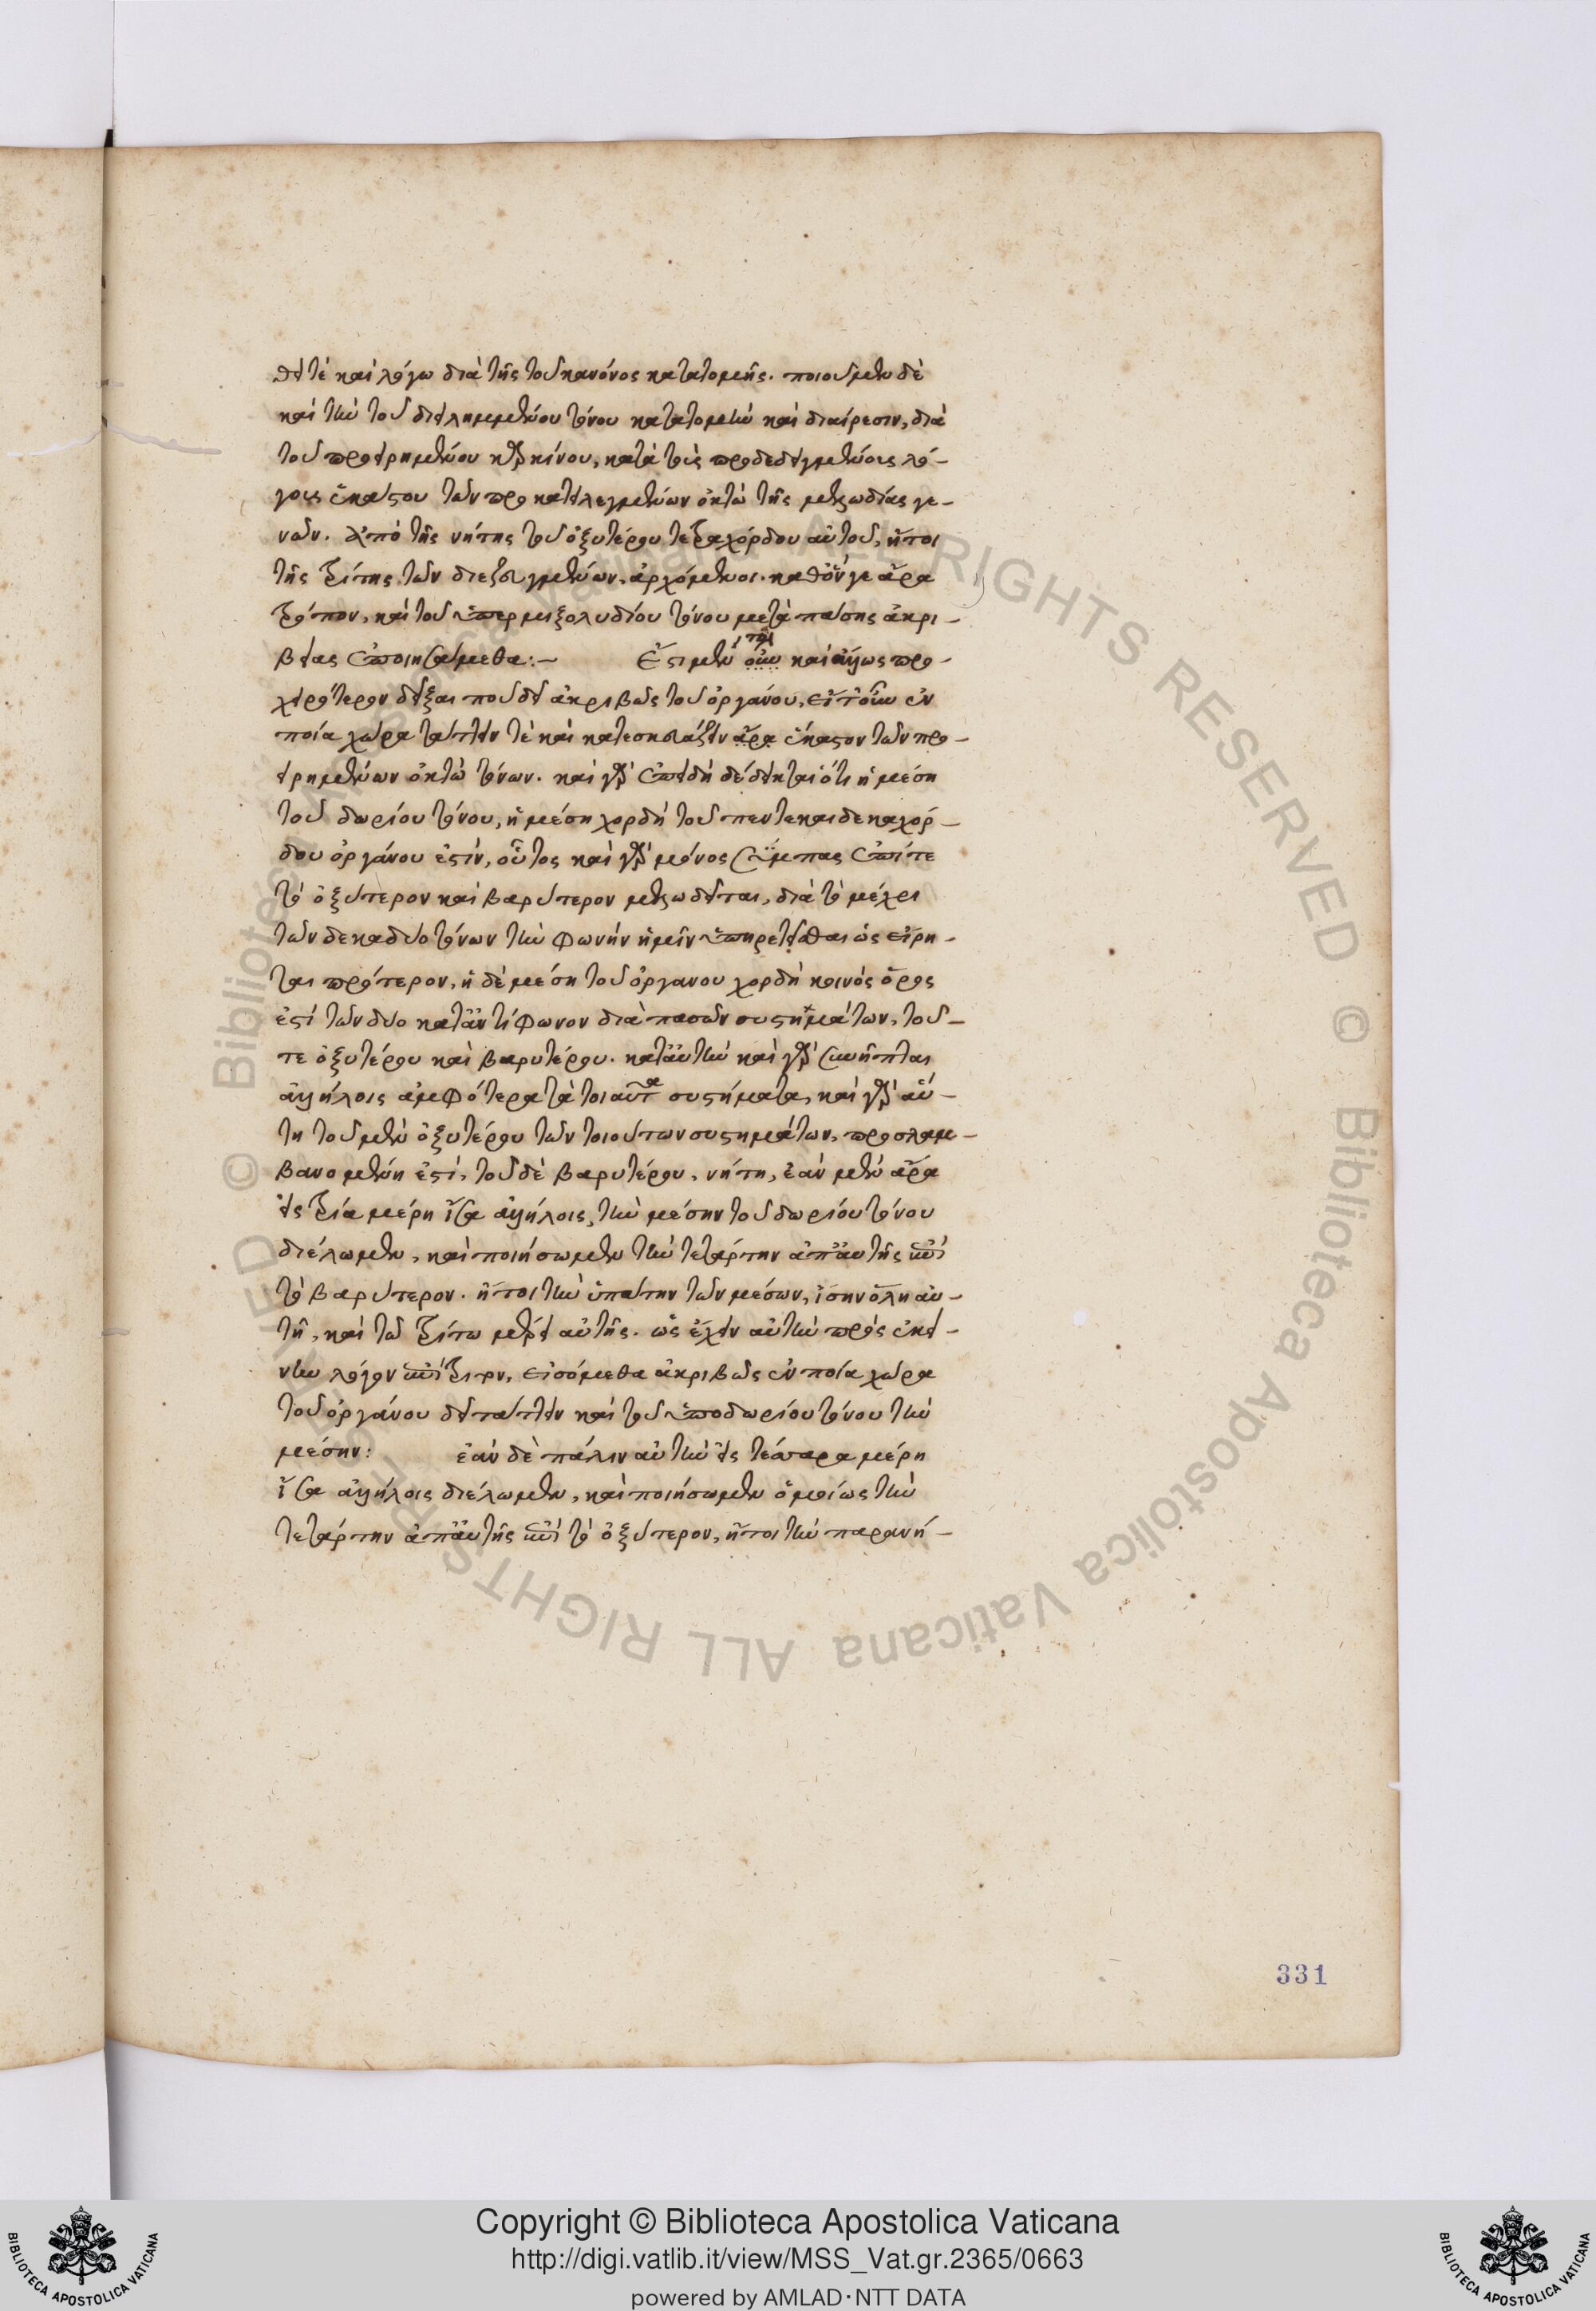 θει τὲ καὶ λόγω διὰ τῆς τοῦ κανόνος κατατομῆς. ποιοῦμεν δὲ
καὶ τὴν τοῦ διειλημμένου τόνου κατατομὴν καὶ διαίρεσιν, διὰ
τοῦ προειρημένου καρκίνου, κατὰ τοὺς προδεδειγμένους λό-
γους ἑκάστου τῶν προκατειλεγμένων ὀκτὼ τῆς μελωδίας γε-
νῶν. ἀπὸ τῆς νήτης τοῦ ὀξυτέρου τετραχόρδου αὐτοῦ, ἤτοι
τῆς τρίτης τῶν διεζευγμένων, ἀρχόμενοι. καθόν γε ἄρα
τρόπον, καὶ τοῦ ὑπερμιξολυδίου τόνου μετὰ πάσης ἀκρι-
βείας ἐποιησάμεθα:- Ἔστι μέν τοι οὖν καὶ ἄλλως προ-
χειρότερον δεῖξαι ποῦ δεῖ ἀκριβῶς τοῦ ὀργάνου, εἴτουν ἐν
ποία χώρα τάττειν τὲ καὶ κατασκευάζειν ἄρα ἕκαστον τῶν προ-
ειρημένων ὀκτὼ τόνων. καὶ γὰρ ἐπειδὴ δέδεικται ὅτι ἡ μέση
τοῦ δωρίου τόνου, ἡ μέση χορδὴ τοῦ πεντεκαιδεκαχόρ-
δου ὀργάνου ἐστίν, οὗτος καὶ γὰρ μόνος σύμπας ἐπί τε
τὸ ὀξύτερον καὶ βαρύτερον μελωδεῖται, διὰ τὸ μέχρι
τῶν δεκαδύο τόνων τὴν φωνήν ἡμῖν ὑπηρετεῖσθαι ὡς εἴρη-
ται πρότερον, ἡ δὲ μέση τοῦ ὀργάνου χορδὴ κοινὸς ὅρος
ἐστί τῶν δύο κατ' ἀντίφωνον διὰ πασῶν συστημάτων, τοῦ-
τε ὀξυτέρου καὶ βαρυτέρου. κατ' αὐτὴν καὶ γὰρ συνῆπται
ἀλλήλοις ἀμφότερα τὰ τοιαῦτα συστήματα, καὶ γὰρ αὕ-
τη τοῦ μὲν ὀξυτέρου τῶν τοιούτων συστημάτων, προσλαμ-
βανομένη ἐστί, τοῦ δὲ βαρυτέρου, νήτη, ἐὰν μὲν ἄρα
εἰς τρία μέρη ἴσα ἀλλήλοις, τὴν μέσην τοῦ δωρίου τόνου
διέλωμεν, καὶ ποιήσωμεν τὴν τετάρτην ἀπ' αὐτῆς ἐπὶ
τὸ βαρύτερον. ἤτοι τὴν ὑπάτην τῶν μέσων, ἴσην ὅλη αὐ-
τῆ, καὶ τῶ τρίτω μέρει αὐτῆς. ὡς ἔχειν αὐτὴν πρὸς ἐκεί-
νην λόγον ἐπίτριτον, εἰσόμεθα ἀκριβῶς ἐν ποία χώρα
τοῦ ὀργάνου δεῖ τάττειν καὶ τοῦ ὑποδωρίου τόνου τὴν
μέσην: ἐὰν δὲ πάλιν αὐτὴν εἰς τέσσαρα μέρη
ἴσα ἀλλήλοις διέλωμεν, καὶ ποιήσωμεν ὁμοίως τὴν
τετάρτην ἀπ' αὐτῆς ἐπὶ τὸ ὀξύτερον, ἤτοι τὴν παρανή-
331
Copyright © Biblioteca Apostolica Vaticana
http://digi.vatlib.it/view/MSS_Vat.gr.2365/0663
powered by AMLAD·NTT DATA